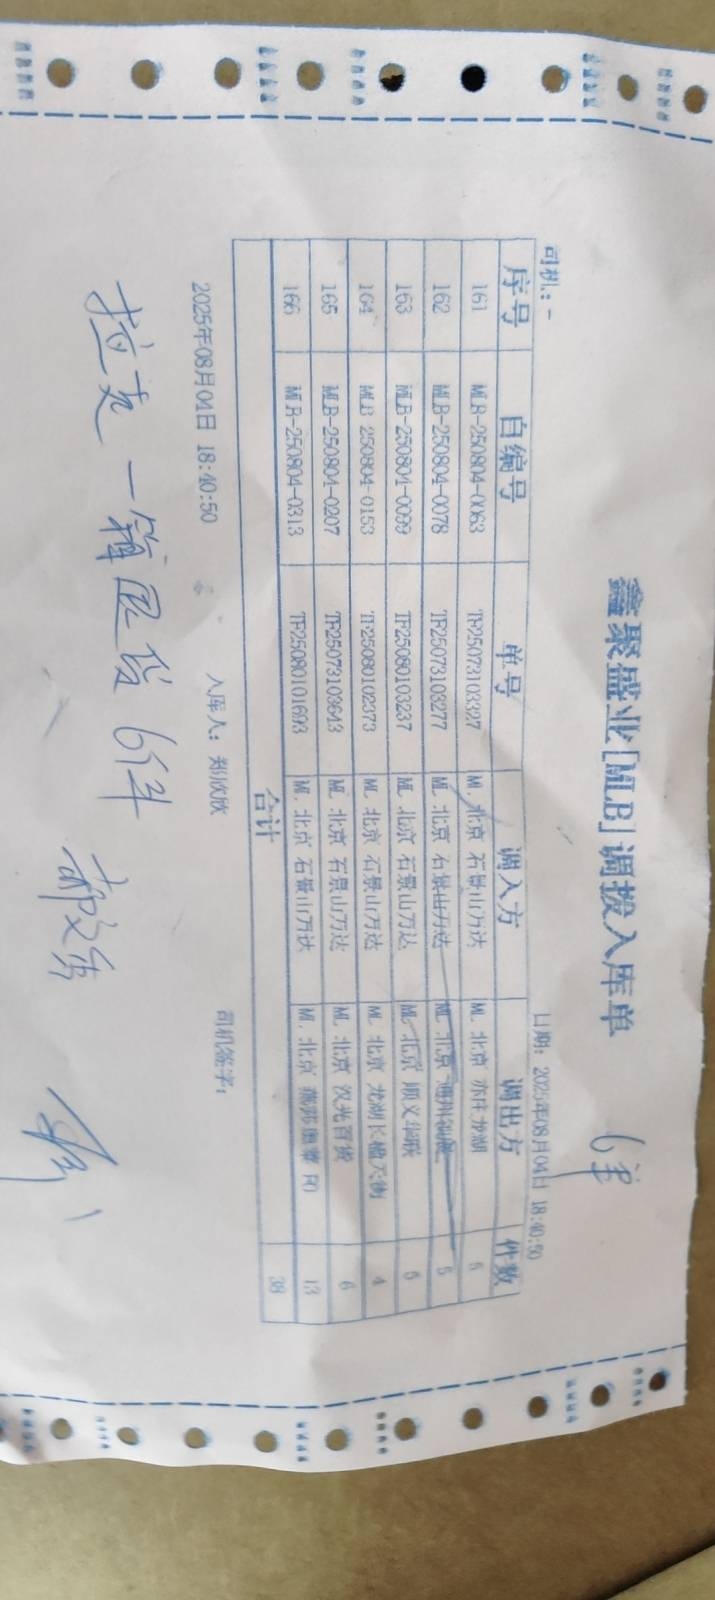 鑫聚盛业[MLB]调拨入库单
6箱
司机：- 日期：2025年08月04日 18:40:50
序号 自编号 单号 调入方 调出方 件数
161 MLB-250804-0063 TF25073103327 ML 北京 石景山万达 ML 北京 亦庄龙湖 5
162 MLB-250804-0078 TF25073103277 ML 北京 石景山万达 ML 北京 通州 5
163 MLB-250804-0099 TF25080103237 ML 北京 石景山万达 ML 北京 顺义华联 5
164 MLB-250804-0153 TF25080102373 ML 北京 石景山万达 ML 北京 龙湖长楹天街 4
165 MLB-250804-0207 TF25073103643 ML 北京 石景山万达 ML 北京 汉光百货 6
166 MLB-250804-0313 TF25080101693 ML 北京 石景山万达 ML 北京 燕莎奥莱 FO 13
合计 38
2025年08月04日 18:40:50 入库人：郑欣欣 司机签字：
拉走一箱退货6件